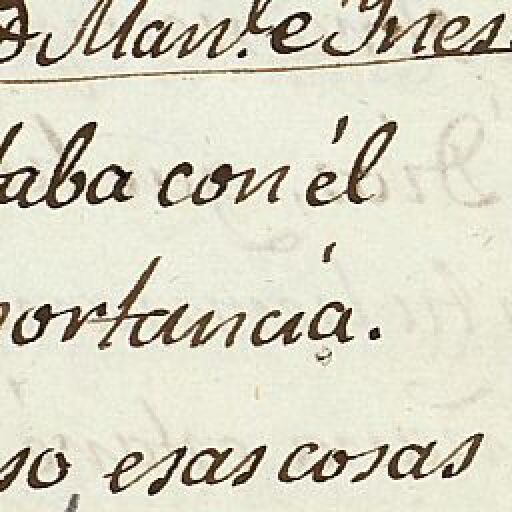 D Man.l e Ynes.
taba con él
portancia.
so esas cosas